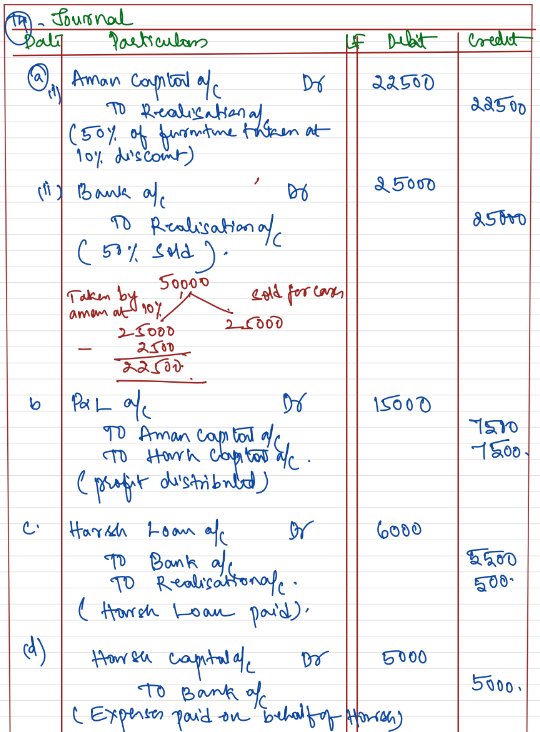 14 - Journal
Date Particulars LF Debit Credit
a (i) Aman Capital a/c Dr 22500
To Realisation a/c 22500
(50% of furniture taken at
10% discount)
(ii) Bank a/c Dr 25000
To Realisation a/c 25000
(50% sold).
50000
Taken by aman at 10% sold for cash
25000 25000
- 2500
22500
b P&L a/c Dr 15000
To Aman Capital a/c 7500
To Harsh Capital a/c. 7500.
(profit distributed)
c. Harsh Loan a/c Dr 6000
To Bank a/c 5500
To Realisation a/c. 500.
(Harsh Loan paid).
(d) Harsh capital a/c Dr 5000
To Bank a/c 5000.
(Expenses paid on behalf of Harsh)